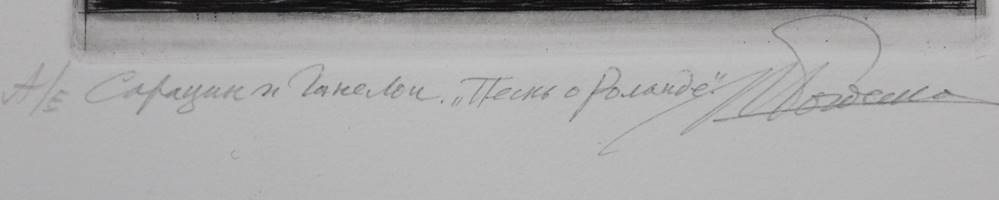 A/E Сарацин и Ганелон. „Песнь о Роланде".